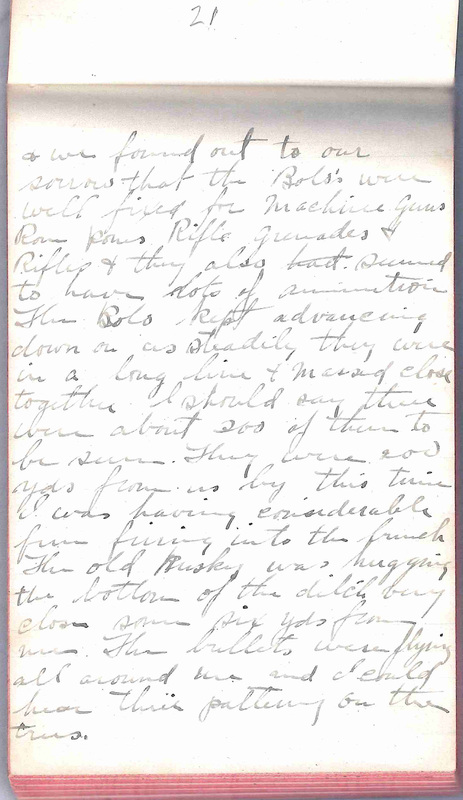 21
& we found out to our
sorrow that the Bolo's were
well fixed for Machine Guns
Pom Poms Rifle Grenades &
Rifles & they also had seemed
to have lots of ammunition
The Bolo kept advancing
down on us steadily they were
in a long line & massed close
together I should say there
were about 200 of them to
be seen. They were 200
yds from us by this time
I was having considerable
fun firing into the bunch
The old Rusky was hugging
the bottom of the ditch very
close some six yds from
me. The bullets were flying
all around me and I could
hear their pattering on the
trees.